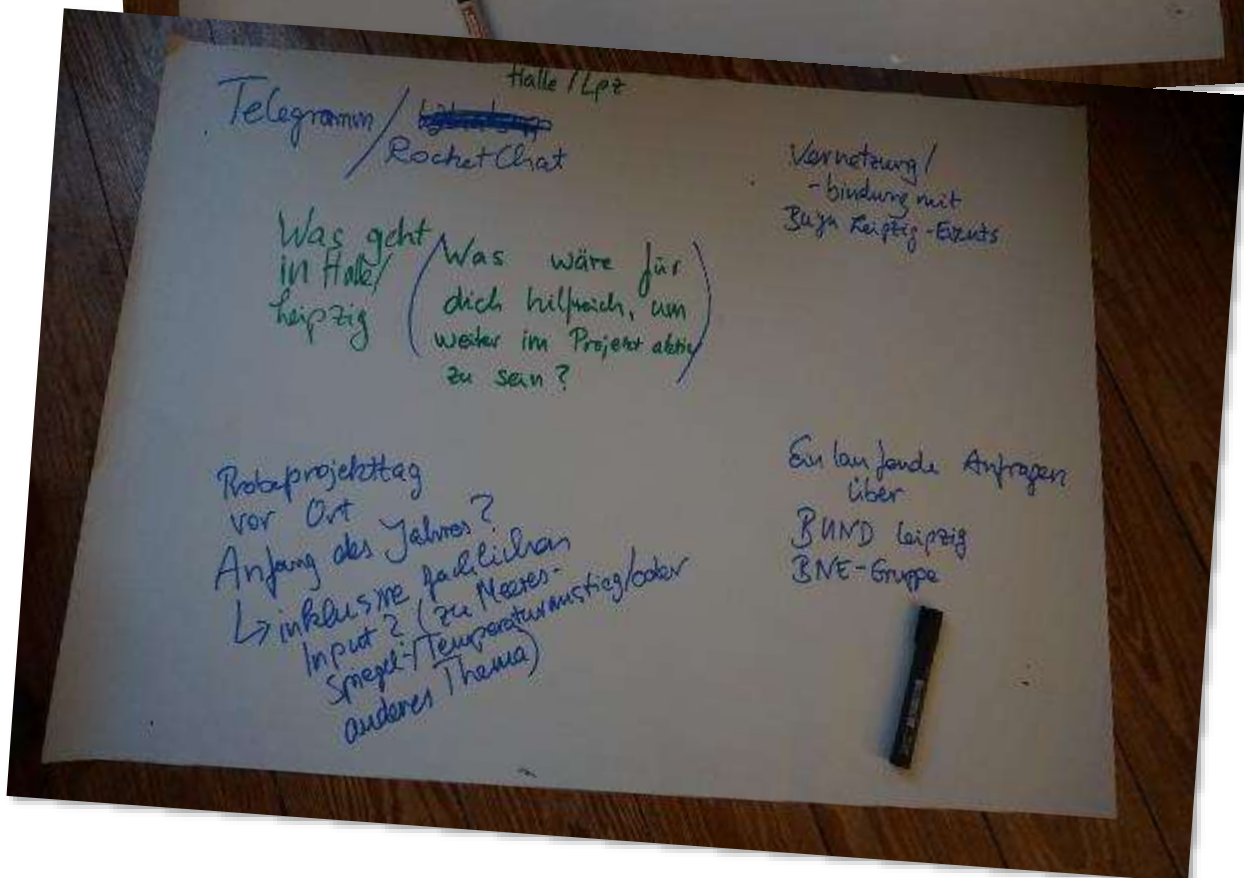 Halle / Lpz
Telegramm /
RocketChat
Vernetzung /
- bindung mit
Leipzig - Events
Was geht
in Halle/
Leipzig
(Was wäre für
dich hilfreich, um
weiter im Projekt aktiv
zu sein?)
Probeprojekttag
vor Ort
Anfang des Jahres?
↳ inklusive fachlichen
Input? (zu Meeres-
Spiegel-/Temperaturanstieg/oder
anderes Thema)
Einlaufende Anfragen
über
BUND Leipzig
BNE-Gruppe